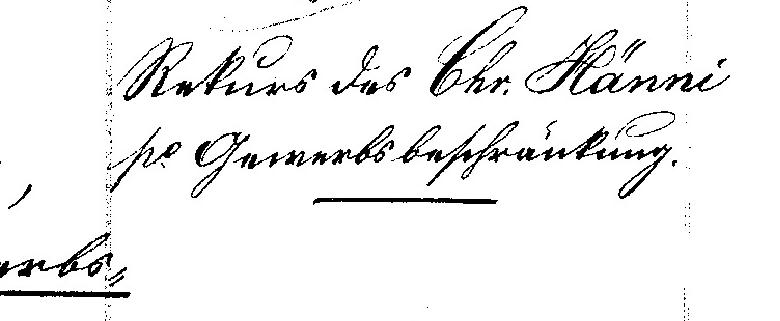 Rekurs des Chr. Hänni
po Gewerbsbeschränkung.
erbs=